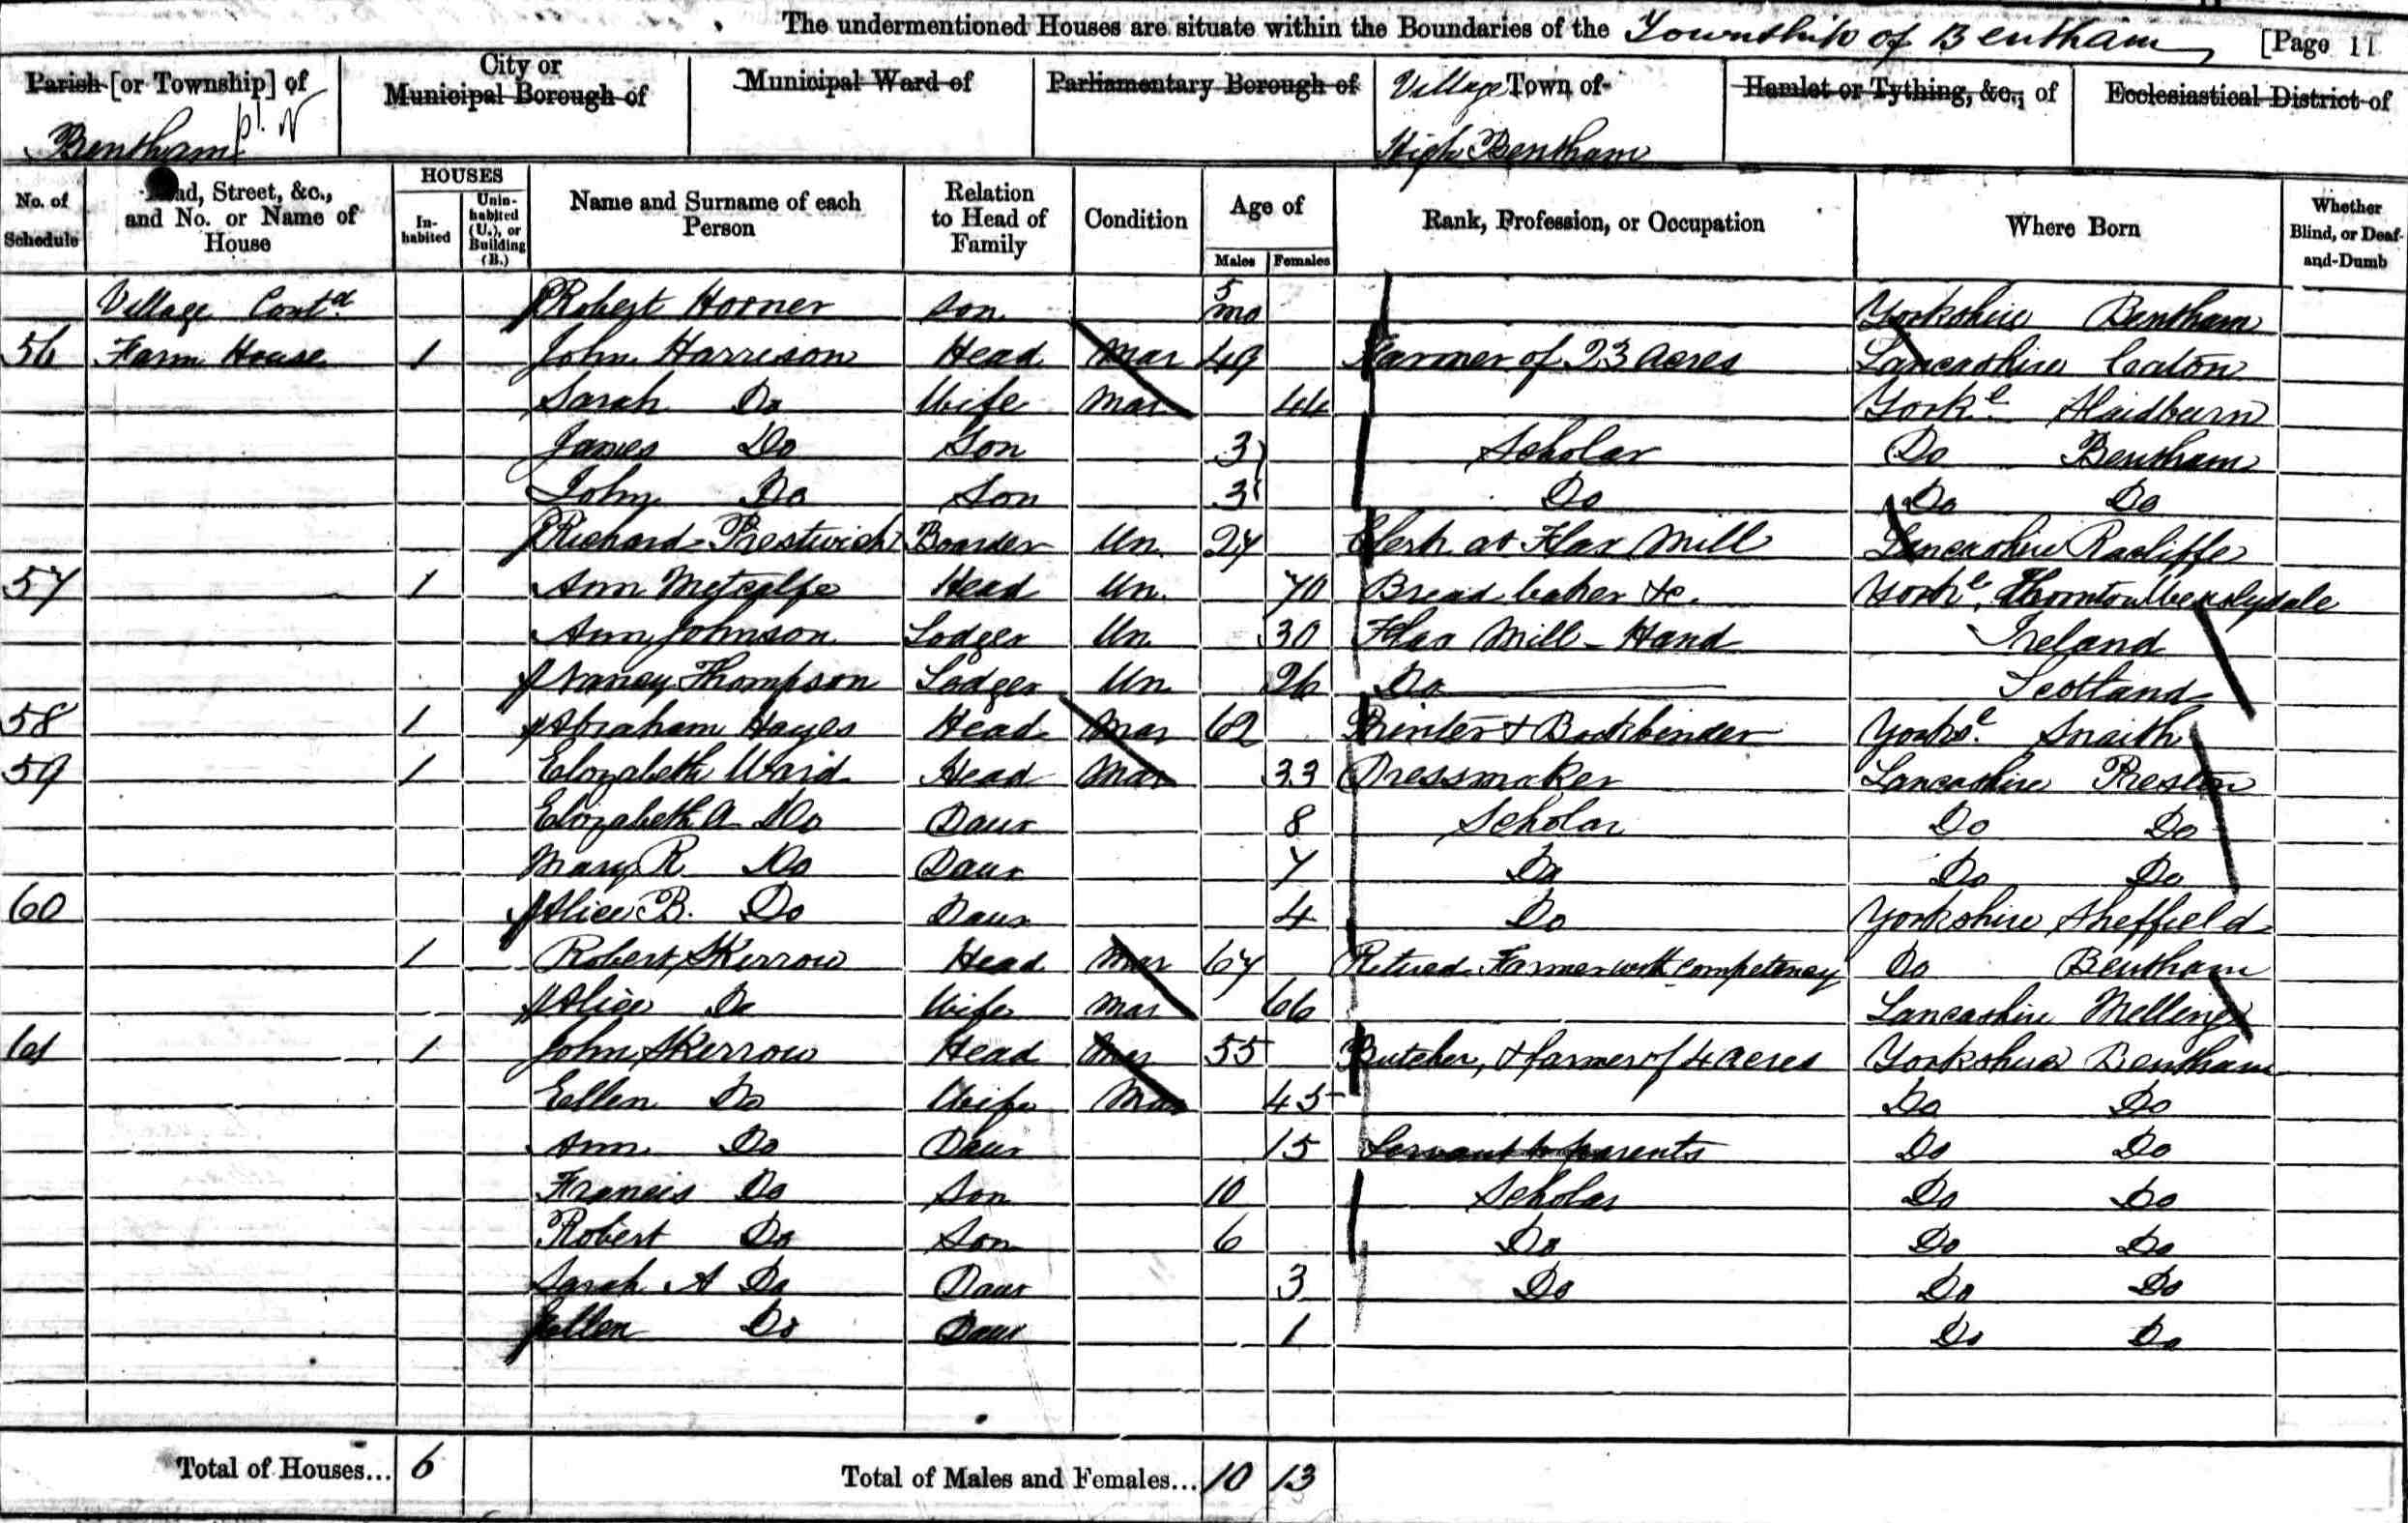 The undermentioned Houses are situate within the Boundaries of the Township of Bentham [Page 11
Parish [or Township] of City or Municipal Borough of Municipal Ward of Parliamentary Borough of Village Town of Hamlet or Tything, &c., of Ecclesiastical District of
Bentham pt. High Bentham
No. of Schedule Road, Street, &c., and No. or Name of House HOUSES Inhabited Uninhabited (U.), or Building (B.) Name and Surname of each Person Relation to Head of Family Condition Age of Males Females Rank, Profession, or Occupation Where Born Whether Blind, or Deaf-and-Dumb
Village Contd Robert Horner Son 5 mo Yorkshire Bentham
56 Farm House 1 John Harrison Head Mar 49 Farmer of 23 Acres Lancashire Caton
Sarah Do Wife Mar 44 Yorke Slaidburn
James Do Son 3 Scholar Do Bentham
John Do Son 3 Do Do Do
Richard Prestwich Boarder Un. 27 Clerk at Flax Mill Lancashire Racliffe
57 1 Ann Metcalfe Head Un. 70 Bread baker &c. Yorke. Thornton Wenslydale
Ann Johnson Lodger Un 30 Flax Mill - Hand Ireland
Nancy Thompson Lodger Un 26 Do Scotland
58 1 Abraham Hayes Head Mar 62 Printer & Bookbinder Yorkse. Snaith
59 1 Elizabeth Ward Head Mar 33 Dressmaker Lancashire Preston
Elizabeth A Do Daur 8 Scholar Do Do
Mary R Do Daur 7 Do Do Do
60 Alice B. Do Daur 4 Do Yorkshire Sheffield
1 Robert Skerrow Head Mar 67 Retired Farmer with competency Do Bentham
Alice Do Wife Mar 66 Lancashire Melling
61 1 John Skerrow Head Mar 55 Butcher, & farmer of 4 acres Yorkshire Bentham
Ellen Do Wife Mar 45 Do Do
Ann Do Daur 15 Servant to parents Do Do
Francis Do Son 10 Scholar Do Do
Robert Do Son 6 Do Do Do
Sarah A Do Daur 3 Do Do Do
Ellen Do Daur 1 Do Do
Total of Houses... 6 Total of Males and Females... 10 13